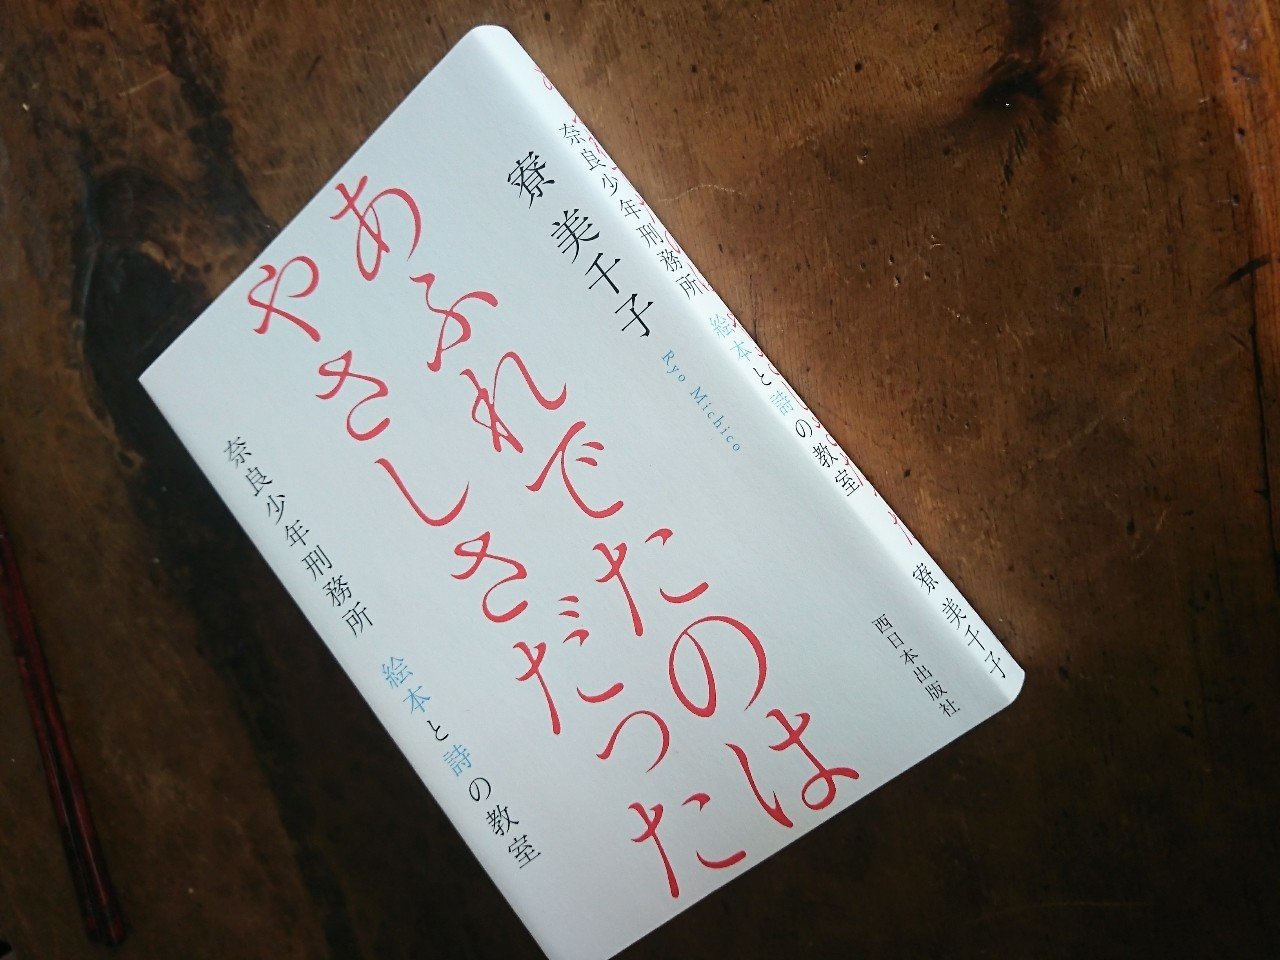 寮 美千子
Ryo Michico
あふれでたのは
やさしさだった
奈良少年刑務所 絵本と詩の教室
奈良少年刑務所 絵本と詩の教室
寮 美千子
西日本出版社